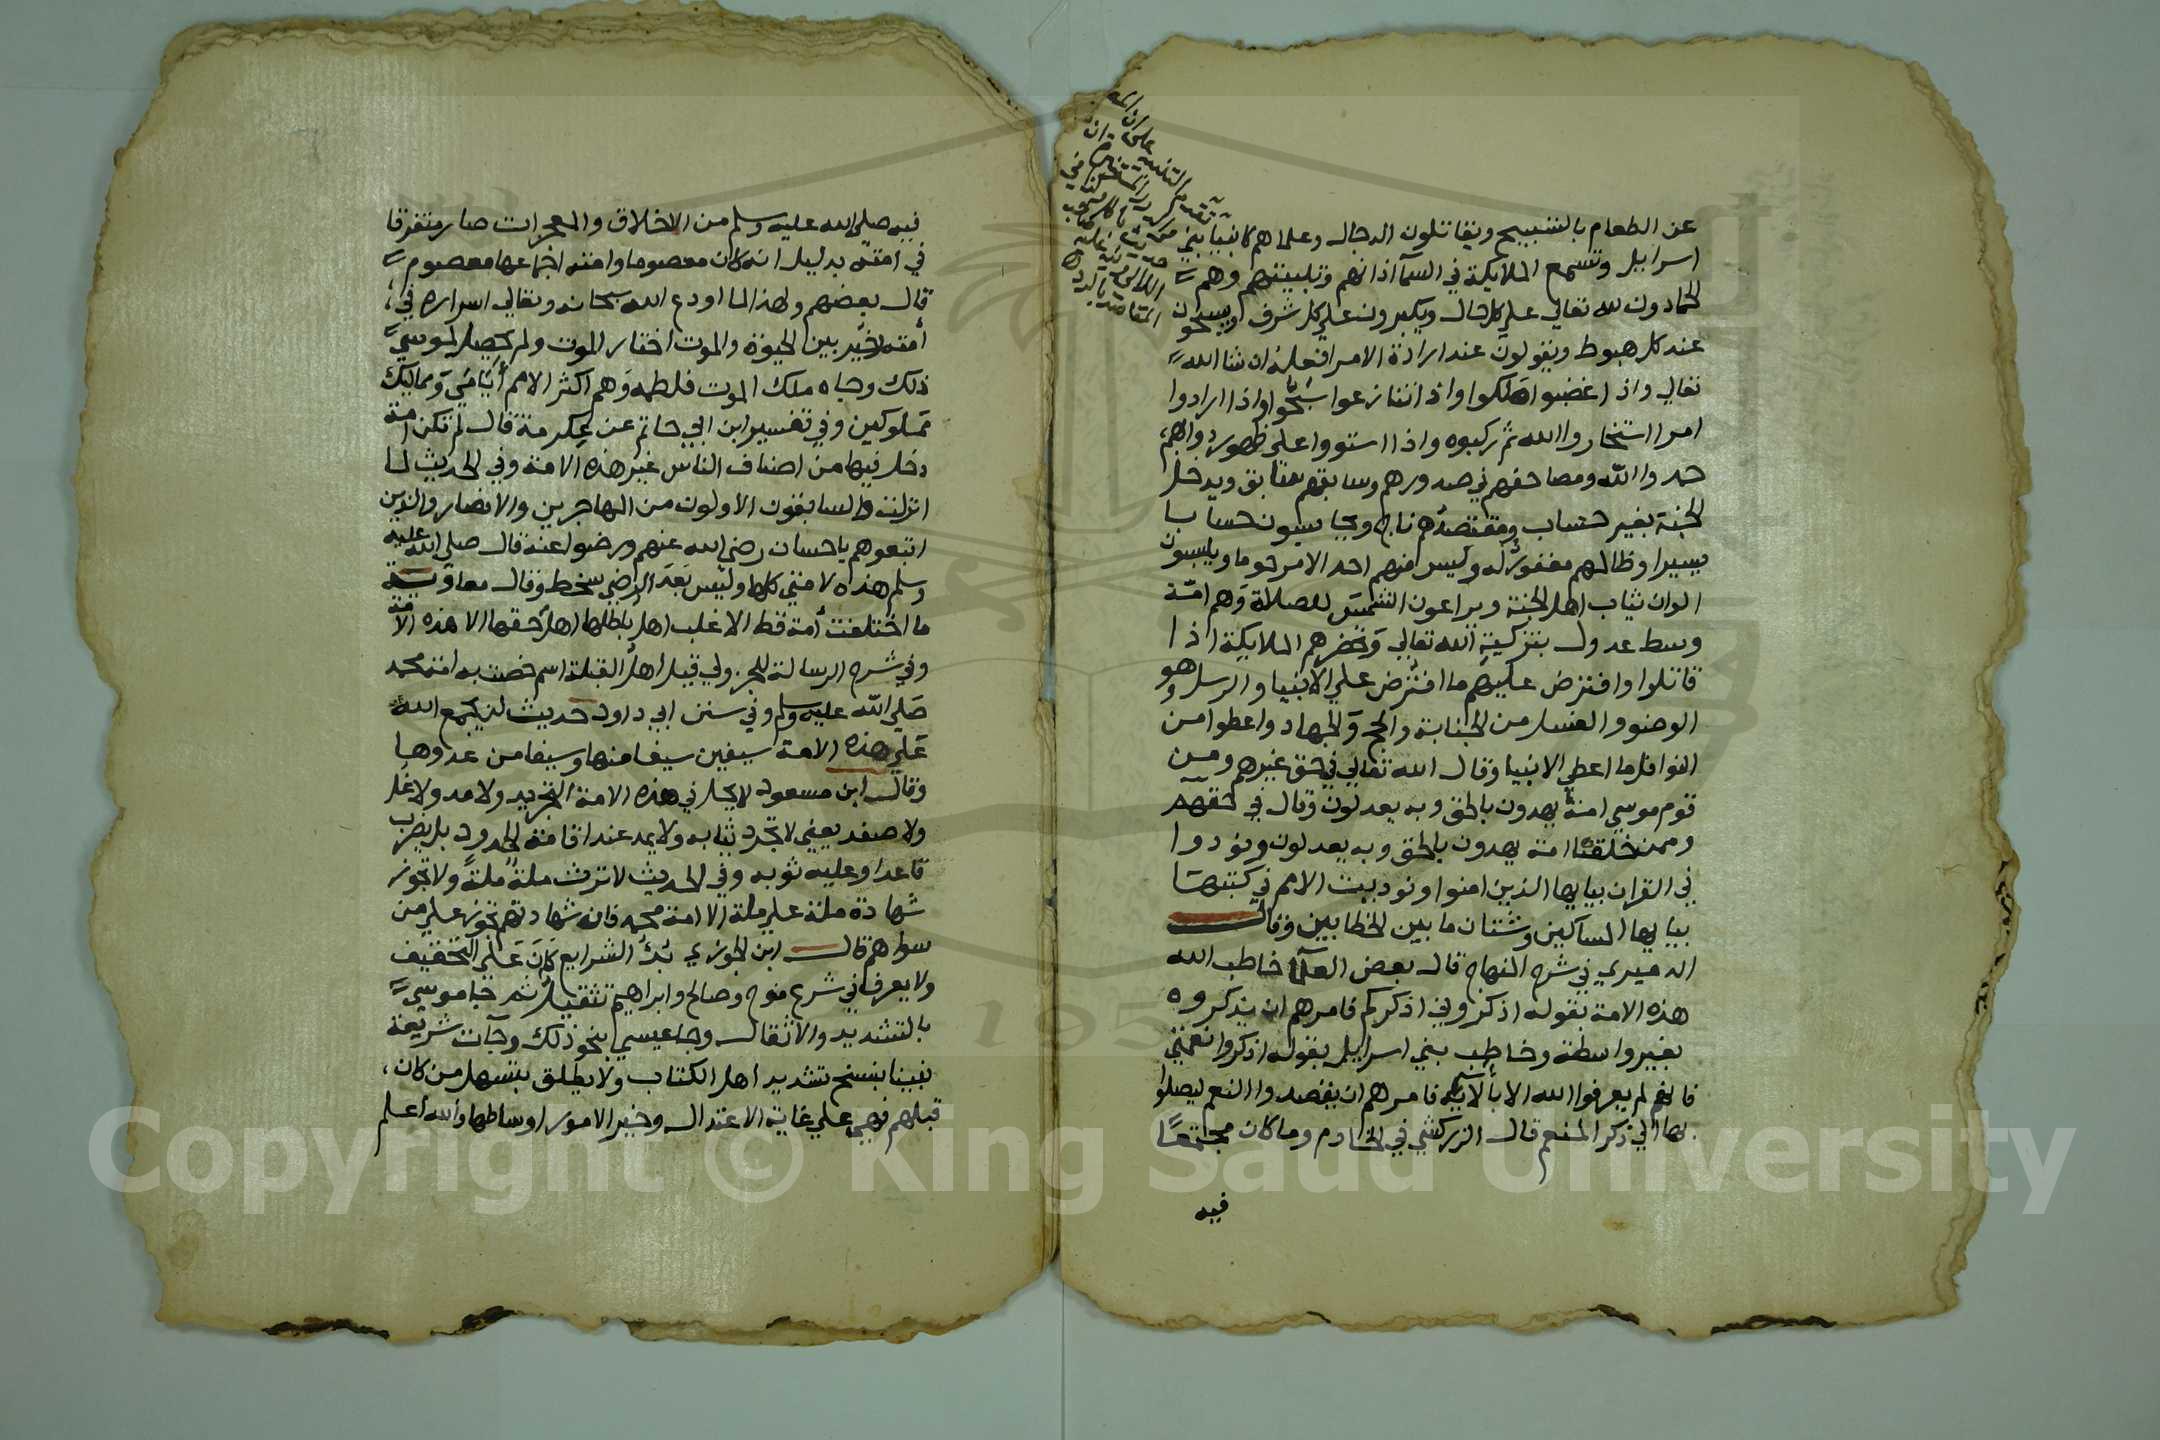 عن الطعام بالتسبيح ويقاتلون الدجال وعلماهم كانبيا بني
اسرايل وتسمع الملايكة في السمآ اذانهم وتلبيتهم وهم
الحمادون لله تعالي علي كل حال ويكبرون علي كل شرف ويسبحون
عند كل هبوط ويقولون عند ارادة الامر افعله ان شا الله
تعالي واذ اغضبوا هللوا واذا تنازعوا سبحوا واذا ارادوا
امرا استخاروا الله ثم ركبوه واذا استووا علي ظهور دوابهم
حمدوا الله ومصاحفهم في صدورهم وسابقهم سابق ويدخل
الجنة بغير حساب ومقتصدهم ناج ويحاسبون حسابا
يسيرا وظالمهم مغفور له وليس منهم احد الا مرحوما ويلبسون
الوان ثياب اهل الجنة ويراعون الشمس للصلاة وهم امة
وسط عدول بتزكية الله تعالي وتحضرهم الملايكة اذا
قاتلوا وافترض عليهم ما افترض علي الانبيا والرسل وهو
الوضو والغسل من الجنابة والحج والجهاد واعطوا من
النوافل ما اعطي الانبيا وقال الله تعالي في حق غيرهم ومن
قوم موسي امة يهدون بالحق وبه يعدلون وقال في حقهم
وممن خلقنا امة يهدون بالحق وبه يعدلون ونودوا
في القران بيايها الذين امنوا ونوديت الامم في كتبها
بيايها المساكين وشتان ما بين الخطابين وقال
الدميري في شرح المنهاج قال بعض العلما خاطب الله
هذه الامة بقوله اذكروني اذكركم فامرهم ان يذكروه
بغير واسطة وخاطب بني اسرايل بقوله اذكروا نعمتي
فانهم لم يعرفوا الله الا بآلايه فامرهم ان يقصدوا النعم ليصلوا
بها الي ذكر المنعم قال الزركشي في الخادم وما كان مجتمعا
فيه
فيه صلي الله عليه وسلم من الاخلاق والمعجزات صار متفرقا
في امته بدليل انه كان معصوما وامته اجماعها معصوم
قال بعضهم ولهذا لما اودع الله سبحانه وتعالي اسراره في
أمته يخير بين الحيوة والموت اختار الموت ولم يحصل لموسي
ذلك وجاه ملك الموت فلطمه وهم اكثر الامم أيامي ومماليك
مملوكين وفي تفسير ابن ابي حاتم عن عكرمة قال لم تكن امة
دخل فيها من اصناف الناس غير هذه الامة وفي الحديث لما
انزلت والسابقون الاولون من المهاجرين والانصار والذين
اتبعوهم باحسان رضي الله عنهم ورضوا عنه قال صلي الله عليه
وسلم هذه لامتي كلها وليس بعد الرضي سخط وقال معاوية
ما اختلفت أمة قط الا غلب اهل باطلها اهل حقها الا هذه الامة
وفي شرح الرسالة للجزولي قيل اهل القبلة اسم خصت به امة محمد
صلي الله عليه وسلم وفي سنن ابي داود حديث لن يجمع الله
علي هذه الامة سيفين سيفا منها وسيفا من عدوها
وقال ابن مسعود لا يحل في هذه الامة التجريد ولا مد ولا غل
ولا صفد يعني لا تجرد ثيابه ولا يمد عند اقامة الحدود بل يضرب
قاعدا وعليه ثوبه وفي الحديث لا ترث ملة ملة ولا تجوز
شهادة ملة علي ملة الا امة محمد فان شهادتهم تجوز علي من
سواهم قال ابن الجوزي بدؤ الشرايع كان علي التخفيف
ولا يعرف في شرع نوح وصالح وابراهيم تثقيل ثم جا موسي
بالتشديد والاثقال وجا عيسي بنحو ذلك وجآت شريعة
نبينا بنسخ تشديد اهل الكتاب ولا يطلق بتسهل من كان
قبلهم فهي علي غاية الاعتدال وخير الامور اوساطها والله أعلم
Copyright © King Saud University